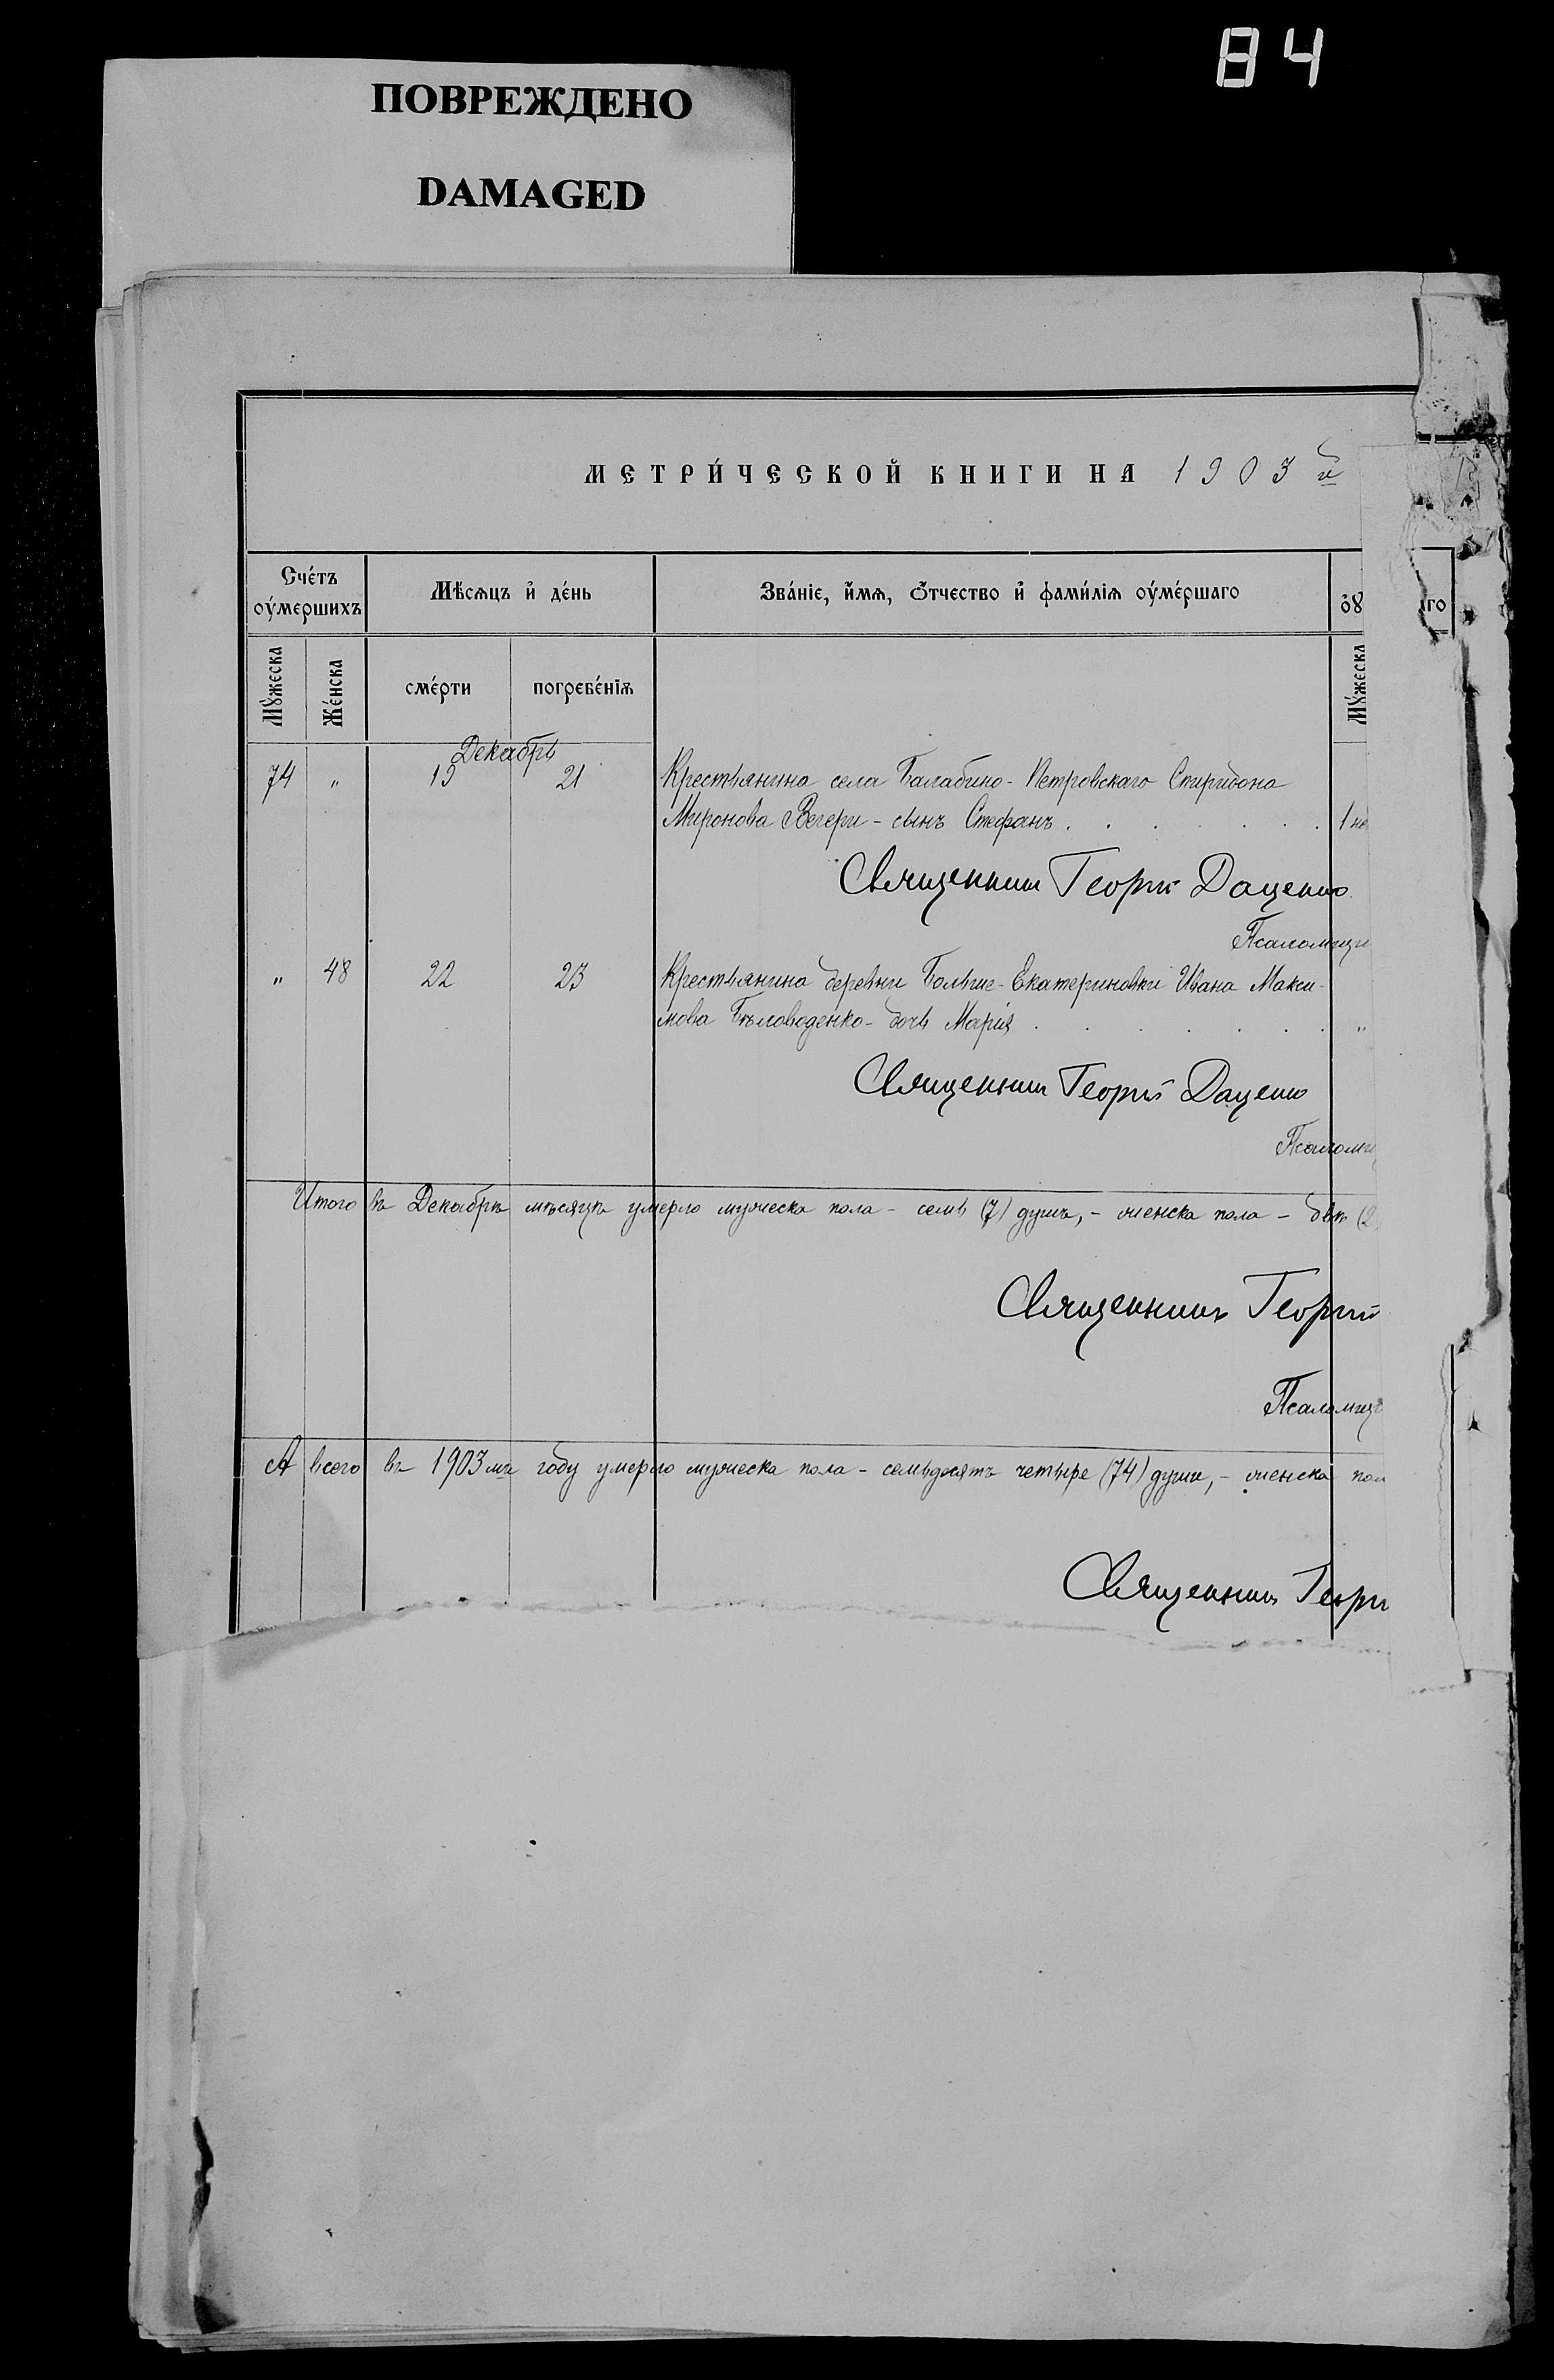 84
ПОВРЕЖДЕНО
DAMAGED
МЕТРИ́ЧЕСКОЙ КНИГИ НА 1903й
Сче́тъ оу҆ме́ршихъ
Мѣ́сѧцъ и҆ де́нь
Зва́нїе, и҆́мѧ, ѻ҆́тчество и҆ фами́лїѧ оу҆ме́ршаго
Мꙋ́жеска
Же́нска
сме́рти
погребе́нїѧ
Мꙋ́жеска
Декабрь
74 " 19 21 Крестьянина села Балабино-Петровскаго Спиридона
Миронова Вечери - сынъ Стефанъ . . . . . . . 1
Священникъ Георгій Даценко
Псаломщи
" 48 22 23 Крестьянина деревни Больше-Екатериновки Ивана Макси-
мова Бѣловоденко - дочь Марія . . . . . . . "
Священникъ Георгій Даценко
Псаломщ
Итого въ Декабрѣ мѣсяцѣ умерло мужеска пола - семь (7) душъ, - женска пола - двѣ (2
Священникъ Георгій
Псаломщ
А всего въ 1903мъ году умерло мужеска пола - семьдесятъ четыре (74) души, - женска пол
Священникъ Георг